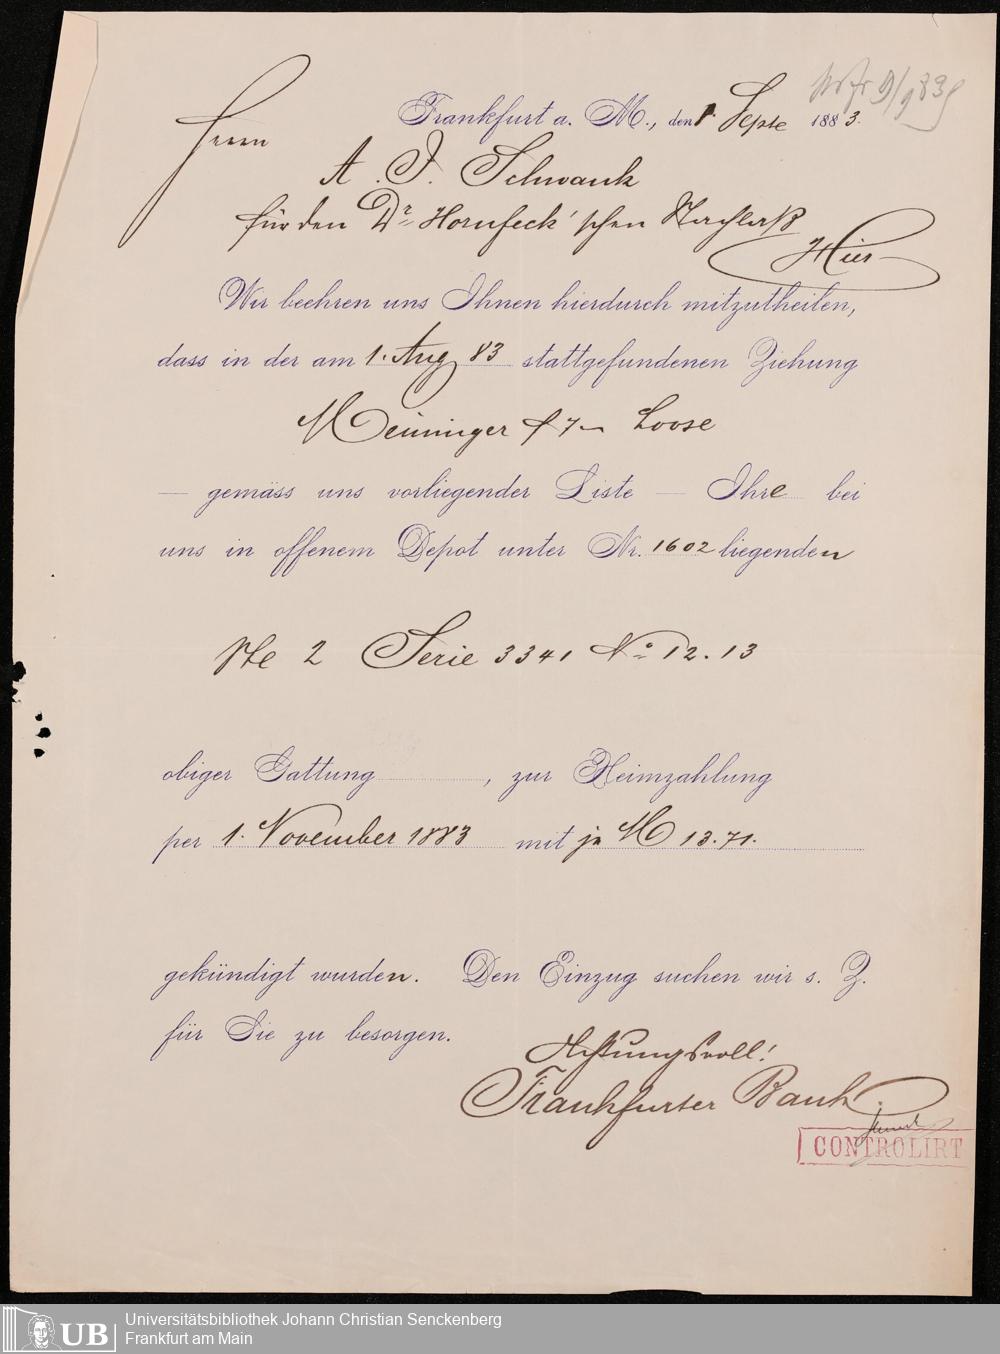 Frankfurt a. M., den 1 Septe 1883.
Herrn
A. J. Schwank
für den Dr Hornfeck'schen Nachlaß
Hier
Wir beehren uns Ihnen hierdurch mitzutheilen,
dass in der am 1. Aug 83 stattgefundenen Ziehung
Meininger f 7 – Loose
— gemäss uns vorliegender Liste — Ihre bei
uns in offenem Depot unter Nr. 1602 liegenden
Ste 2 Serie 3341 No 12.13
obiger Gattung , zur Heimzahlung
per 1. November 1883 mit je M 13.71.
gekündigt wurden. Den Einzug suchen wir s. Z.
für Sie zu besorgen.
Achtungsvoll!
Frankfurter Bank.
CONTROLIRT
Universitätsbibliothek Johann Christian Senckenberg
UB Frankfurt am Main